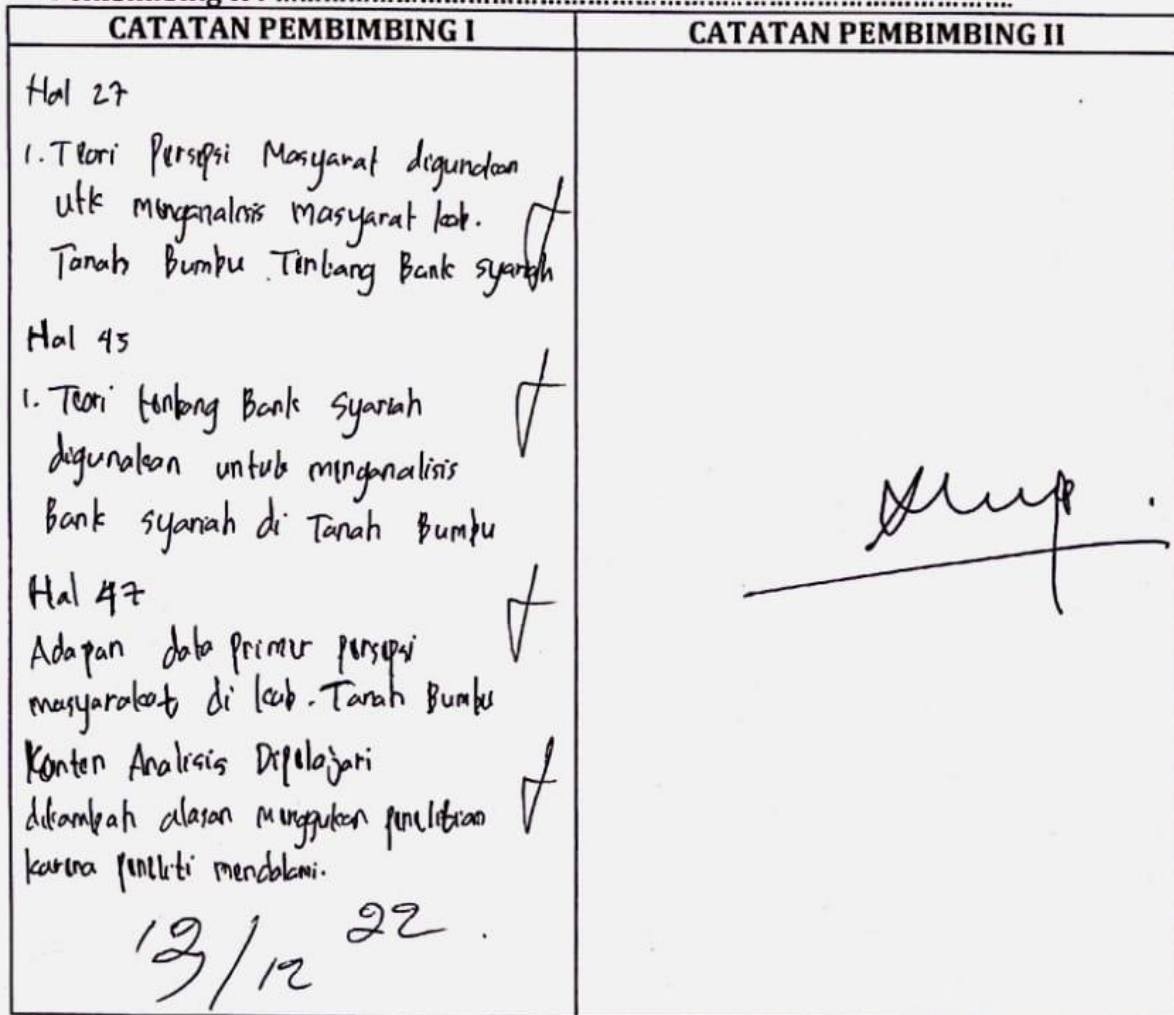 CATATAN PEMBIMBING I
CATATAN PEMBIMBING II
Hal 27
1. Teori Persepsi Masyarat digunakan
utk menganalisis masyarat kab.
Tanah Bumbu Tentang Bank syariah
Hal 45
1. Teori tentang Bank syariah
digunakan untuk menganalisis
Bank syariah di Tanah Bumbu
Hal 47
Adapan data primer persepsi
masyarakat di kab. Tanah Bumbu
Konten Analisis Dipelajari
ditambah alasan menggukan penelitian
karena peneliti mendalami.
13/12 22.